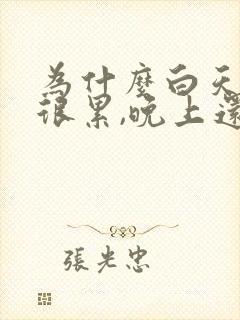 為什麼白天
很累,晚上還
張光忠